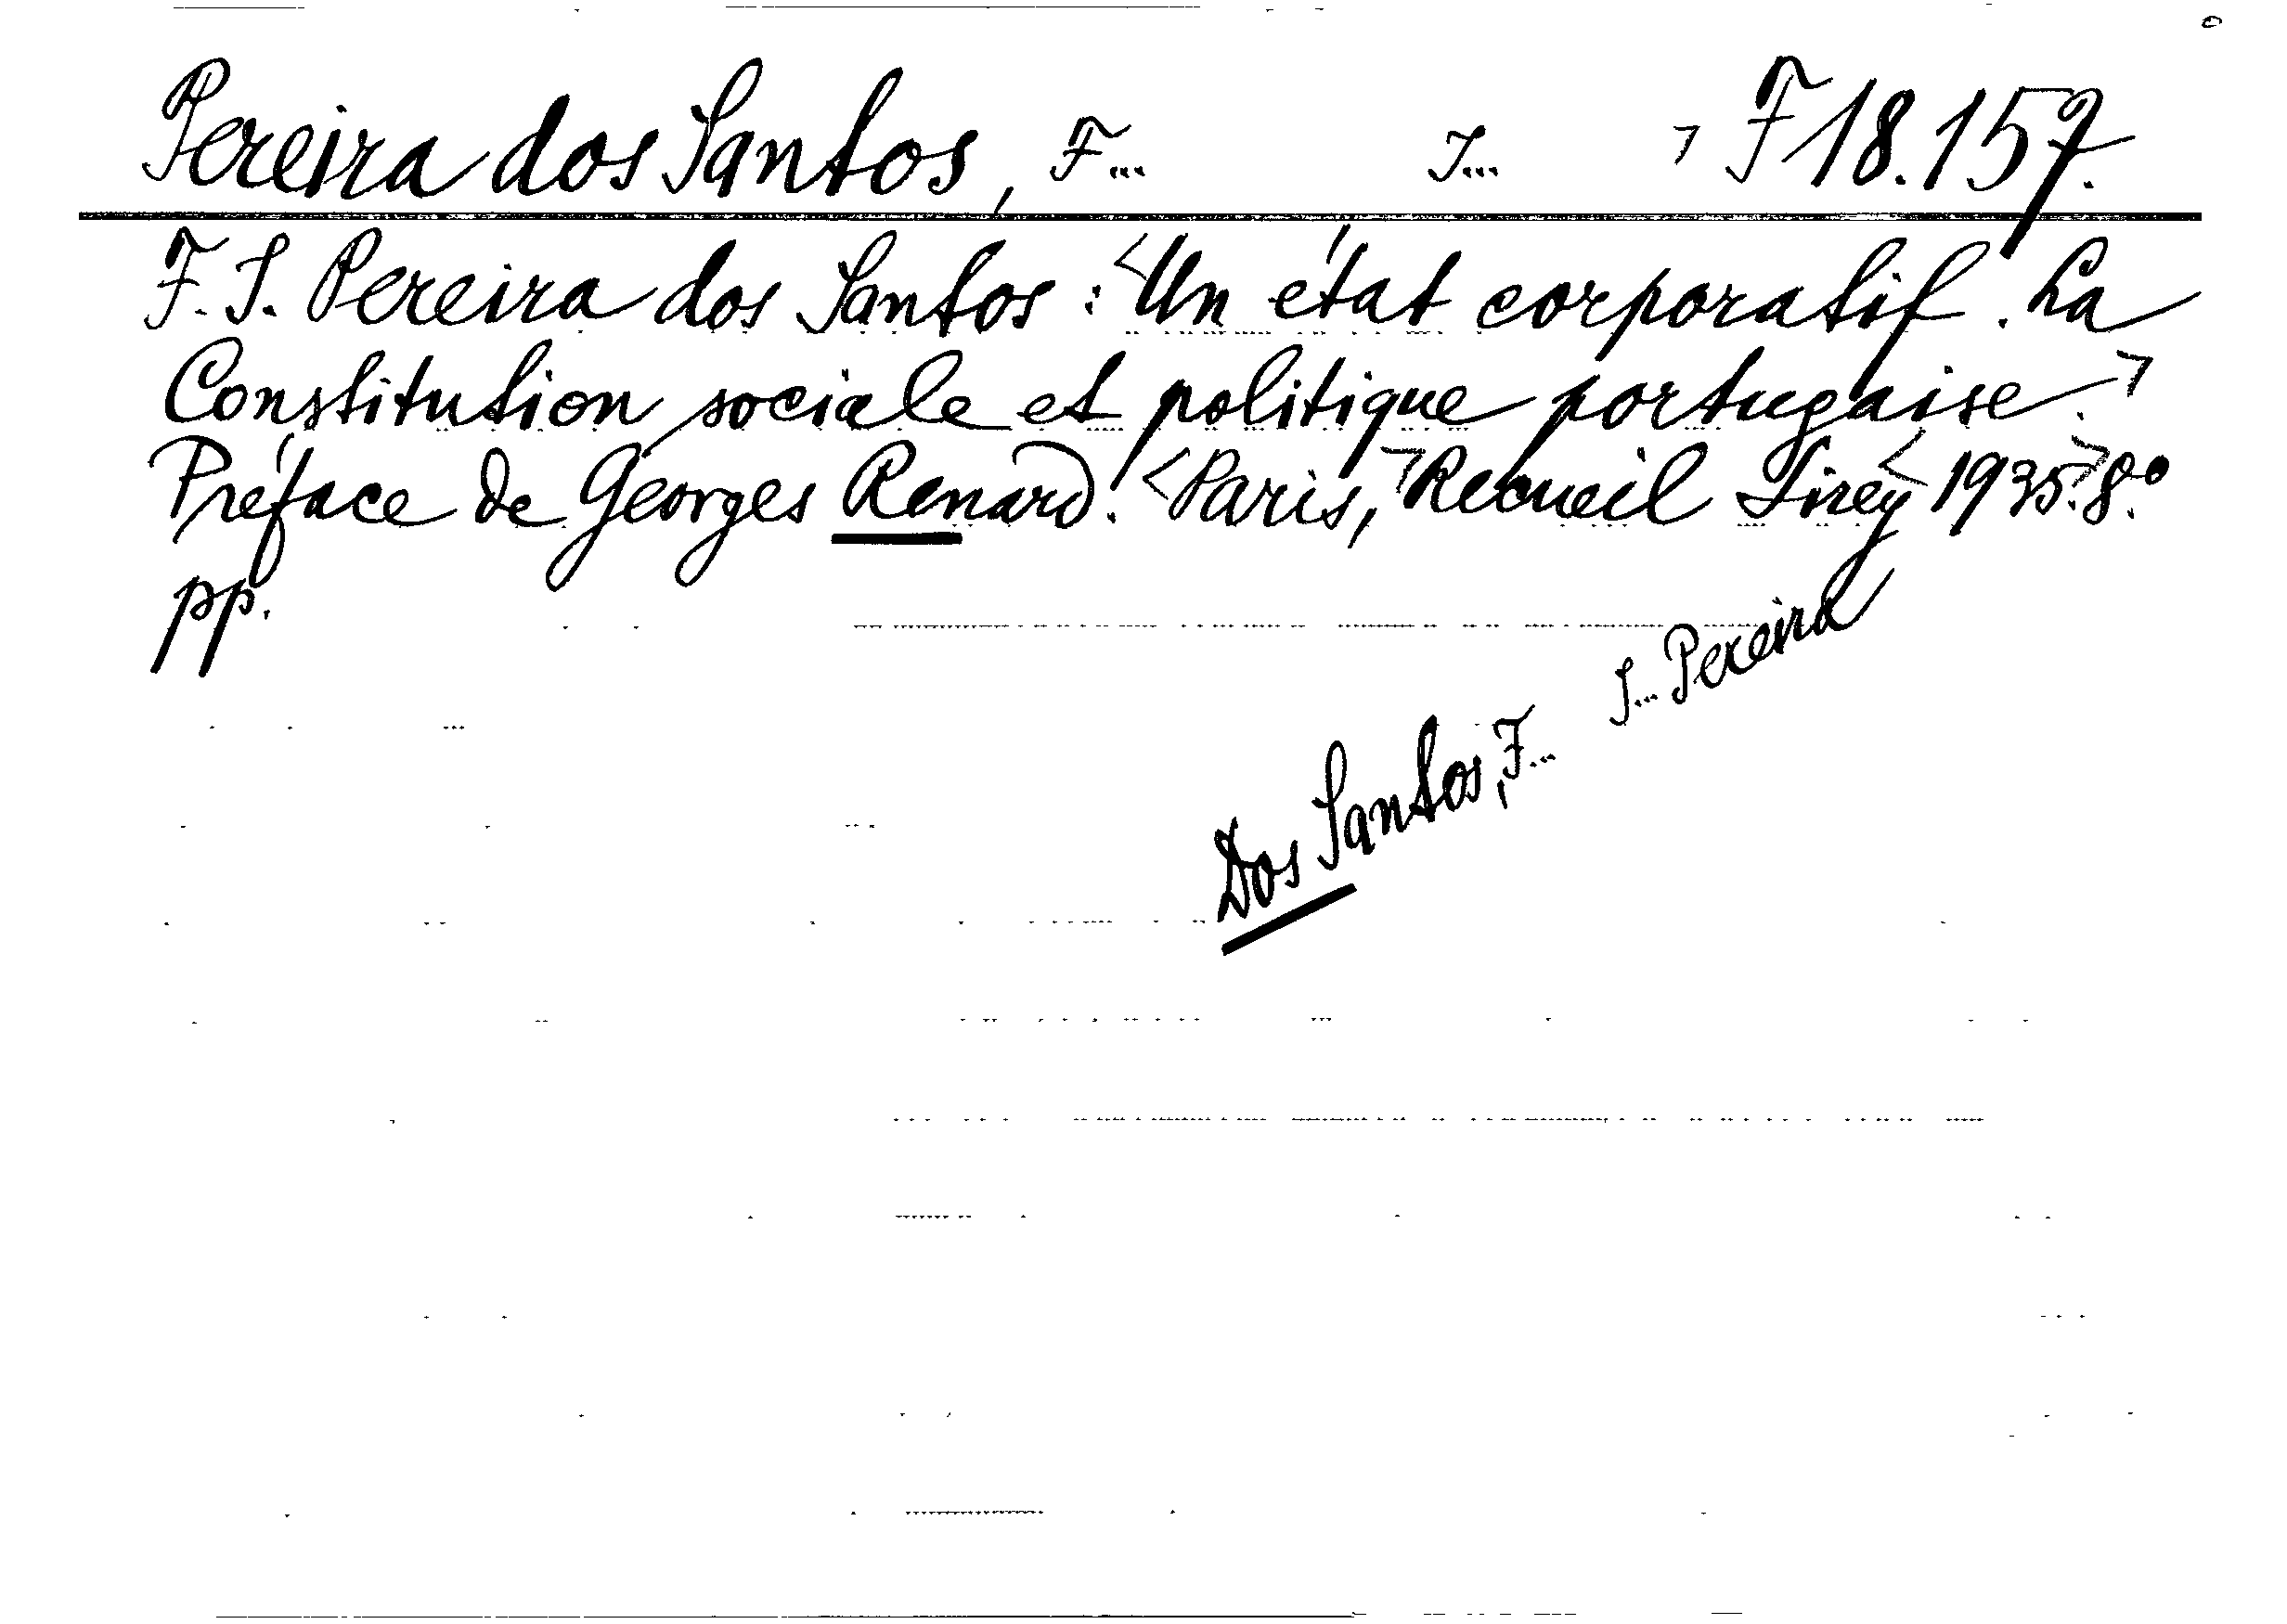 Pereira dos Santos, F... I... ⁊ F 18.157.
F. I. Pereira dos Santos : <Un état corporatif. La
Constitution sociale et politique portugaise.>
Préface de Georges Renard. <Paris,> Recueil Sirey <1935.> 8º.
pp.
Dos Santos, F... I... Pereira